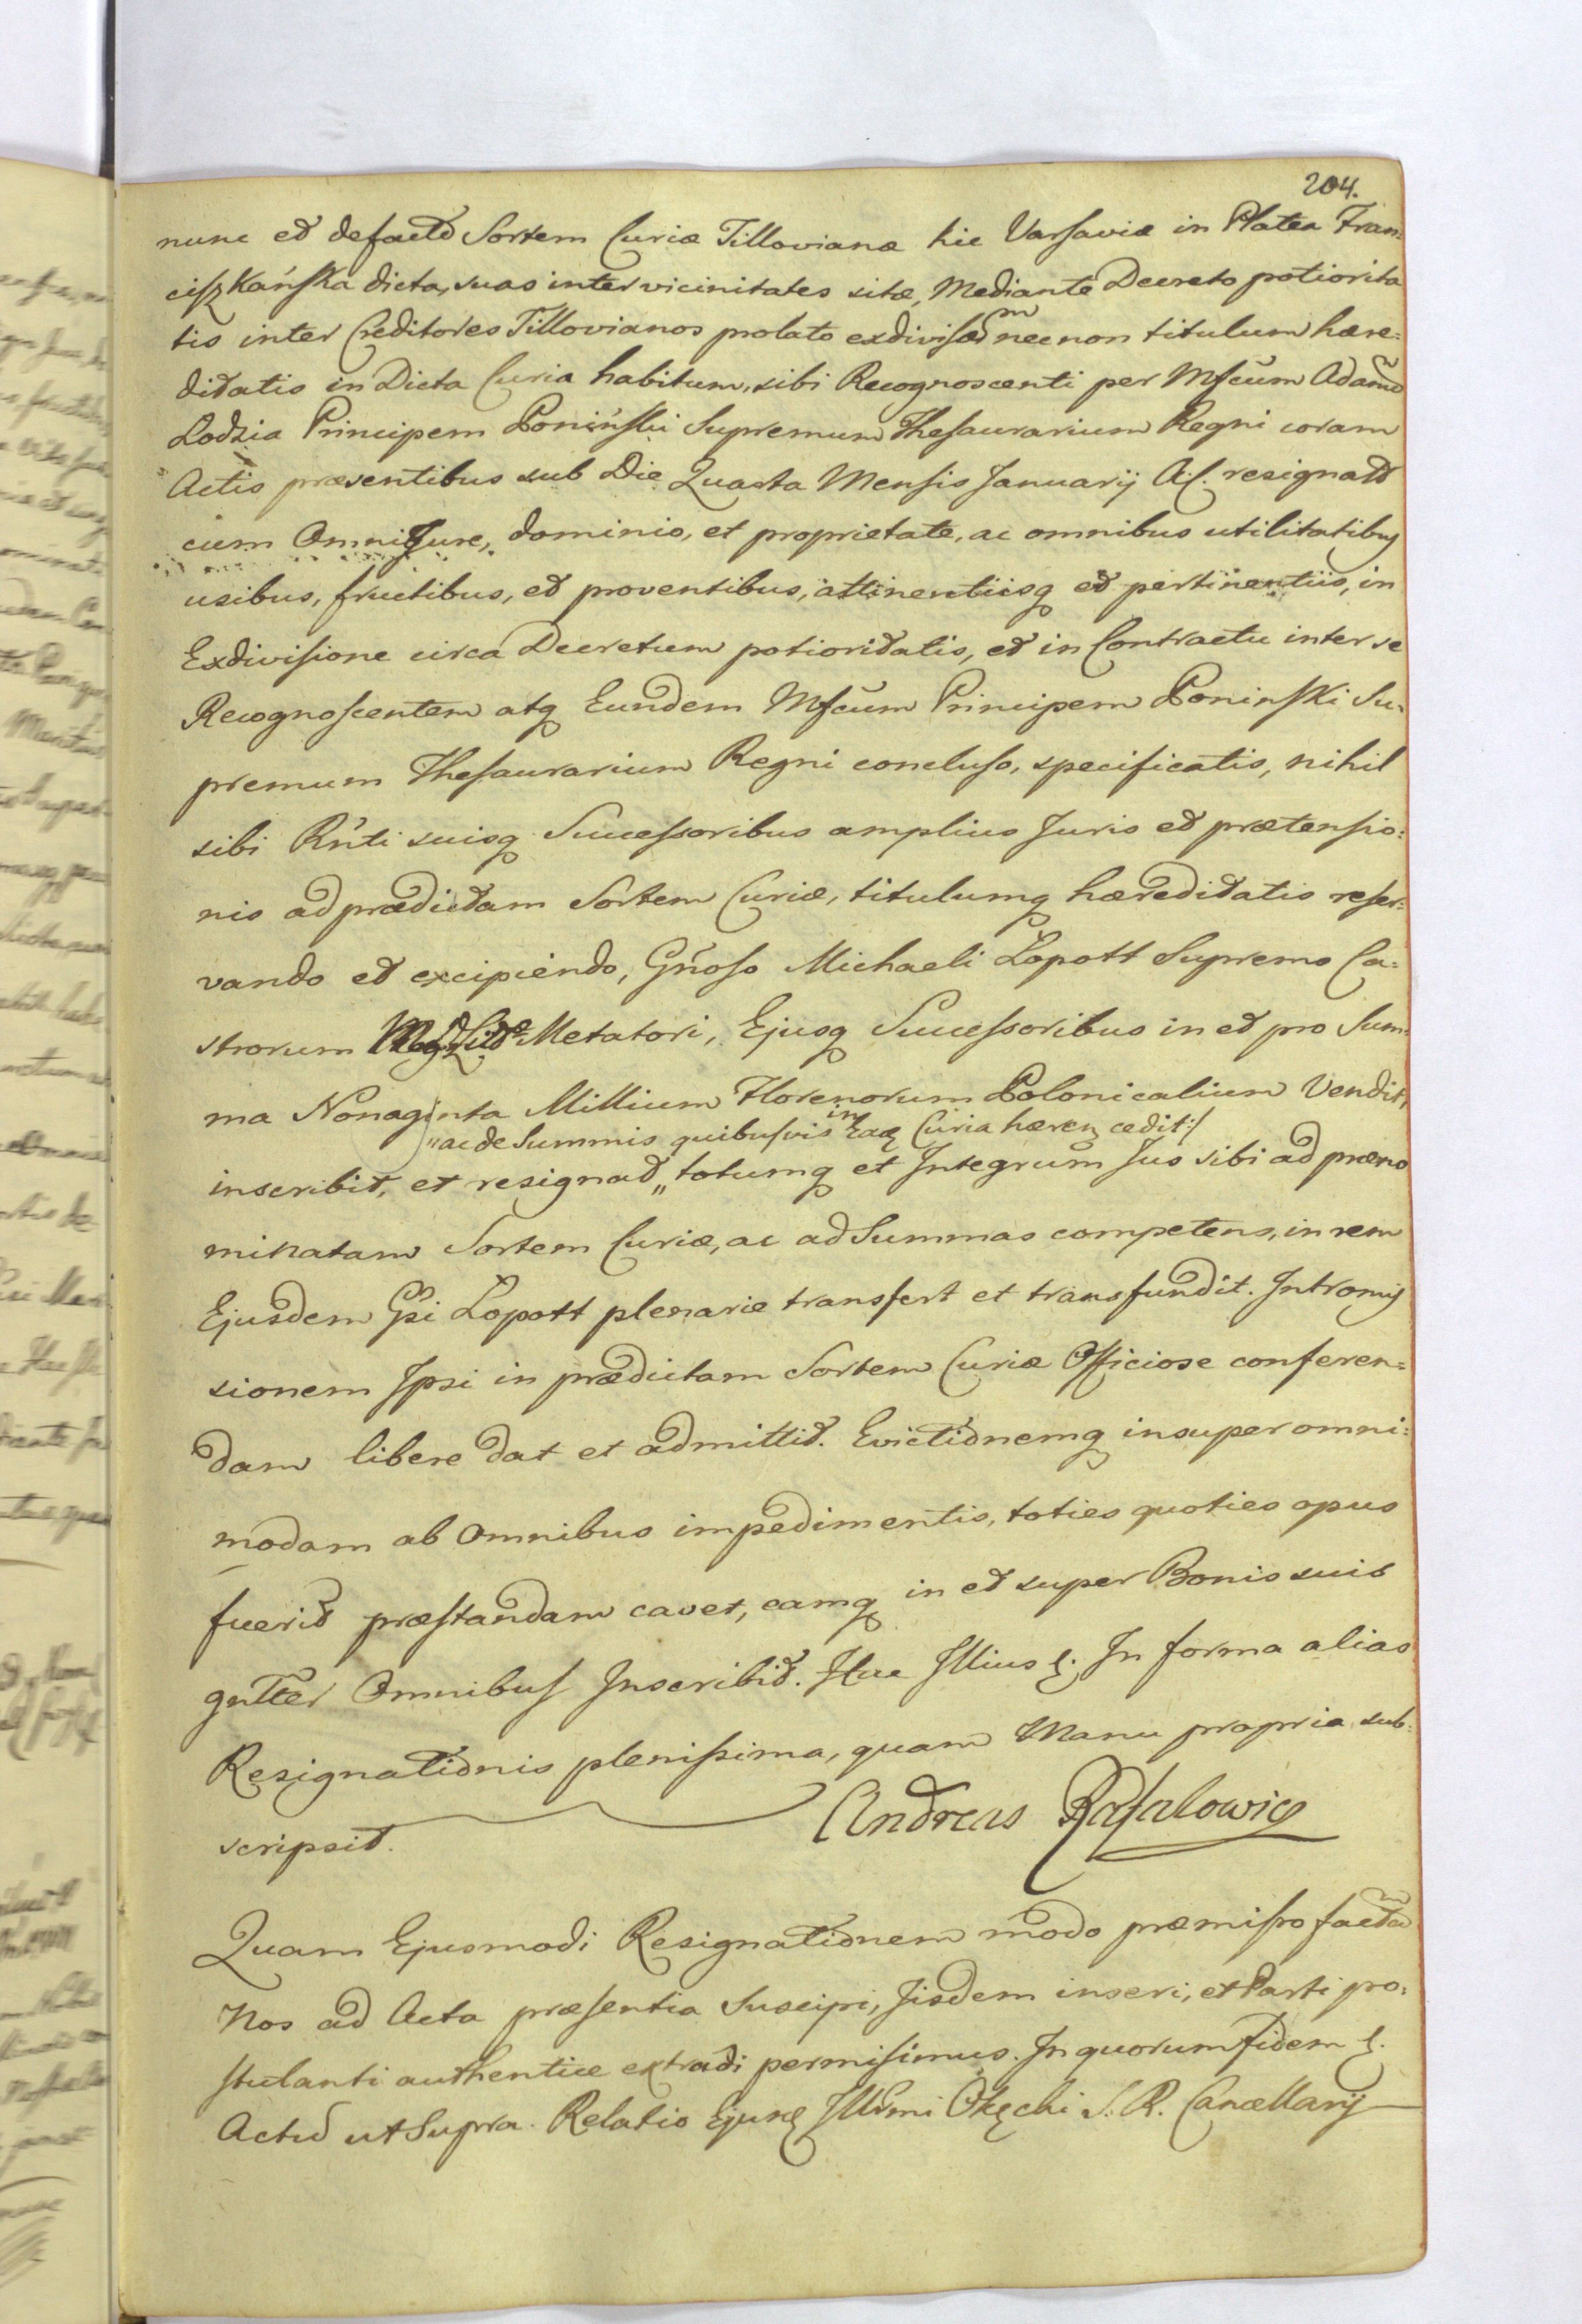 204.
nunc et defacto Sortem Curiæ Tillovianæ hic Varsaviæ in Platea Fran=
ciszKańska dicta, suas inter vicinitates sitæ, Mediante Decreto potiorita
tis inter Creditores Tillovianos prolato exdivisæ necnon titulum hære=
m
ditatis in Dicta Curia habitum, sibi Recognoscenti per Mfcum Adamu
Lodzia Principem Poniński Supremum Thesaurarium Regni coram
Actis præsentibus sub Die Quarta Mensis Januarij A.C. resignatu
cum Omni Jure, dominio, et proprietate, ac omnibus utilitatibus
usibus, fructibus, et proventibus, attinentiisq et pertinentiis, in
Exdivisione circa Decretum potioritatis, et in Contractu inter se
Recognoscentem atq Eundem Mfcum Principem PoninsKi Su=
premum Thesaurarium Regni concluso, specificatis, nihil
sibi Rnti suisq Successoribus amplius Juris et prætensio=
nis ad prædictam Sortem Curiæ, titulumq hæreditatis reser=
vando et excipiendo, Gnoso Michaeli Łopott Supremo Ca=
strorum Metatori, Ejusq Successoribus in et pro Sum
ma Nonaginta Millium Florenorum Polonicalium Vendit,
"ac de Summis quibusvis in Eaq Curia hæren cedit:/
inscribit, et resignat „ totumq et Integrum Jus sibi ad præno
minatam Sortem Curiæ, ac ad Summas competens, in rem
Ejusdem Gsi Łopott plenarie transfert et transfundit. Intromis
sionem Ipsi in prædictam Sortem Curiæ Officiose conferen=
dam libere dat et admittit. Evictionemq insuper omni=
modam ab Omnibus impedimentis, toties quoties opus
fuerit præstandam cavet, eamq in et super Bonis suis
gntter Omnibus Inscribit. Hac Illius &. In forma alias
Resignationis plenissima, quam Manu propria sub=
scripsit. Andreas Rafalowicz
Quam Ejusmodi Resignationem modo præmisso facta
Nos ad Acta præsentia Suscipi, Iisdem inseri, et Parti po=
stulanti authentice extradi permisimus. In quorum fidem &.
Actu ut Supra. Relatio Ejusq Illrmi Okęcki S. R. Cancellarij